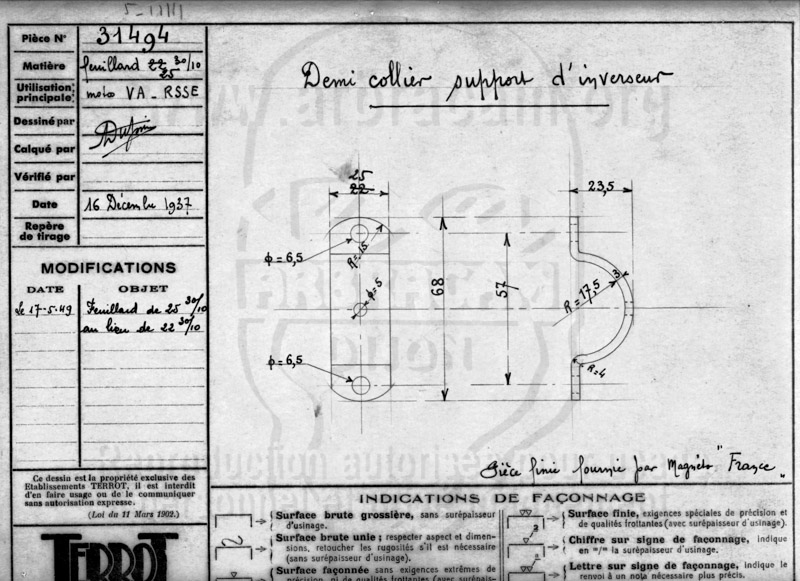 Pièce N° 31494
Matière feuillard 22 25 30/10
Utilisation principale moto VA - RSSE
Dessiné par
Calqué par
Vérifié par
Date 16 Décembre 1937
Repère de tirage
MODIFICATIONS
DATE OBJET
Le 17-5-49 Feuillard de 25 30/10
au lieu de 22 30/10
Ce dessin est la propriété exclusive des
Etablissements TERROT, il est interdit
d'en faire usage ou de le communiquer
sans autorisation expresse.
(Loi du 11 Mars 1902.)
TERROT
Demi collier support d'inverseur
25
22
23,5
φ = 6,5
R = 15
φ = 5
68
57
R = 17,5
3
φ = 6,5
R = 4
Pièce finie fournie par Magnéto "France"
INDICATIONS DE FAÇONNAGE
Surface brute grossière, sans surépaisseur
d'usinage.
Surface brute unie; respecter aspect et dimen-
sions, retoucher les rugosités s'il est nécessaire
(sans surépaisseur d'usinage),
Surface façonnée sans exigences extrêmes de
précision, ni de qualités frottantes (avec surépais-
Surface finie, exigences spéciales de précision et
de qualités frottantes (avec surépaisseur d'usinage).
2
Chiffre sur signe de façonnage, indique
en m/m la surépaisseur d'usinage.
a
Lettre sur signe de façonnage, indique le
renvoi à un nota nécessaire plus précis.